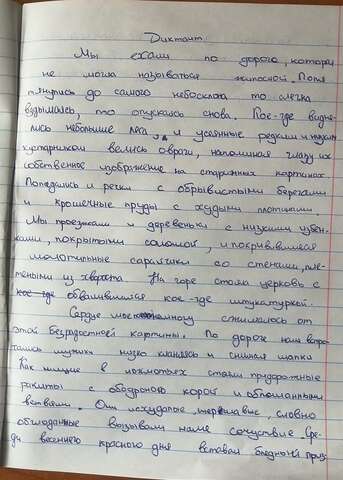 Диктант.
Мы ехали по дороге, которая
не могла называться живописной. Поля
тянулись до самого небосклона то слегка
вздымаясь, то опускаясь снова. Кое-где видне-
лись небольшие леса, и усеянные редким и
кустарником вились овраги, напоминая глазу их
собственное изображение на старинных картинах.
Попадались и речки с обрывистыми берегами
и крошечные пруды с худыми плотинами.
Мы проезжали и деревеньки с низкими избен-
ками, покрытыми соломой, и покривившиеся
молотильные сарайчики со стенами, пле-
тёными из хвороста. На горе стояла церковь с
кое-где обвалившейся кое-где штукатуркой.
Сердце сжималось от
этой безрадостной картины. По дороге нам встре-
тались мужики низко кланяясь и снимая шапки
Как нищие в лохмотьях стояли придорожные
ракиты с ободранною корой и обломанными
ветвями. Они исхудалые, шершавые, словно
обглоданные вызывали наше сочувствие. Сре-
ди весеннего красного дня вставал бледный приз